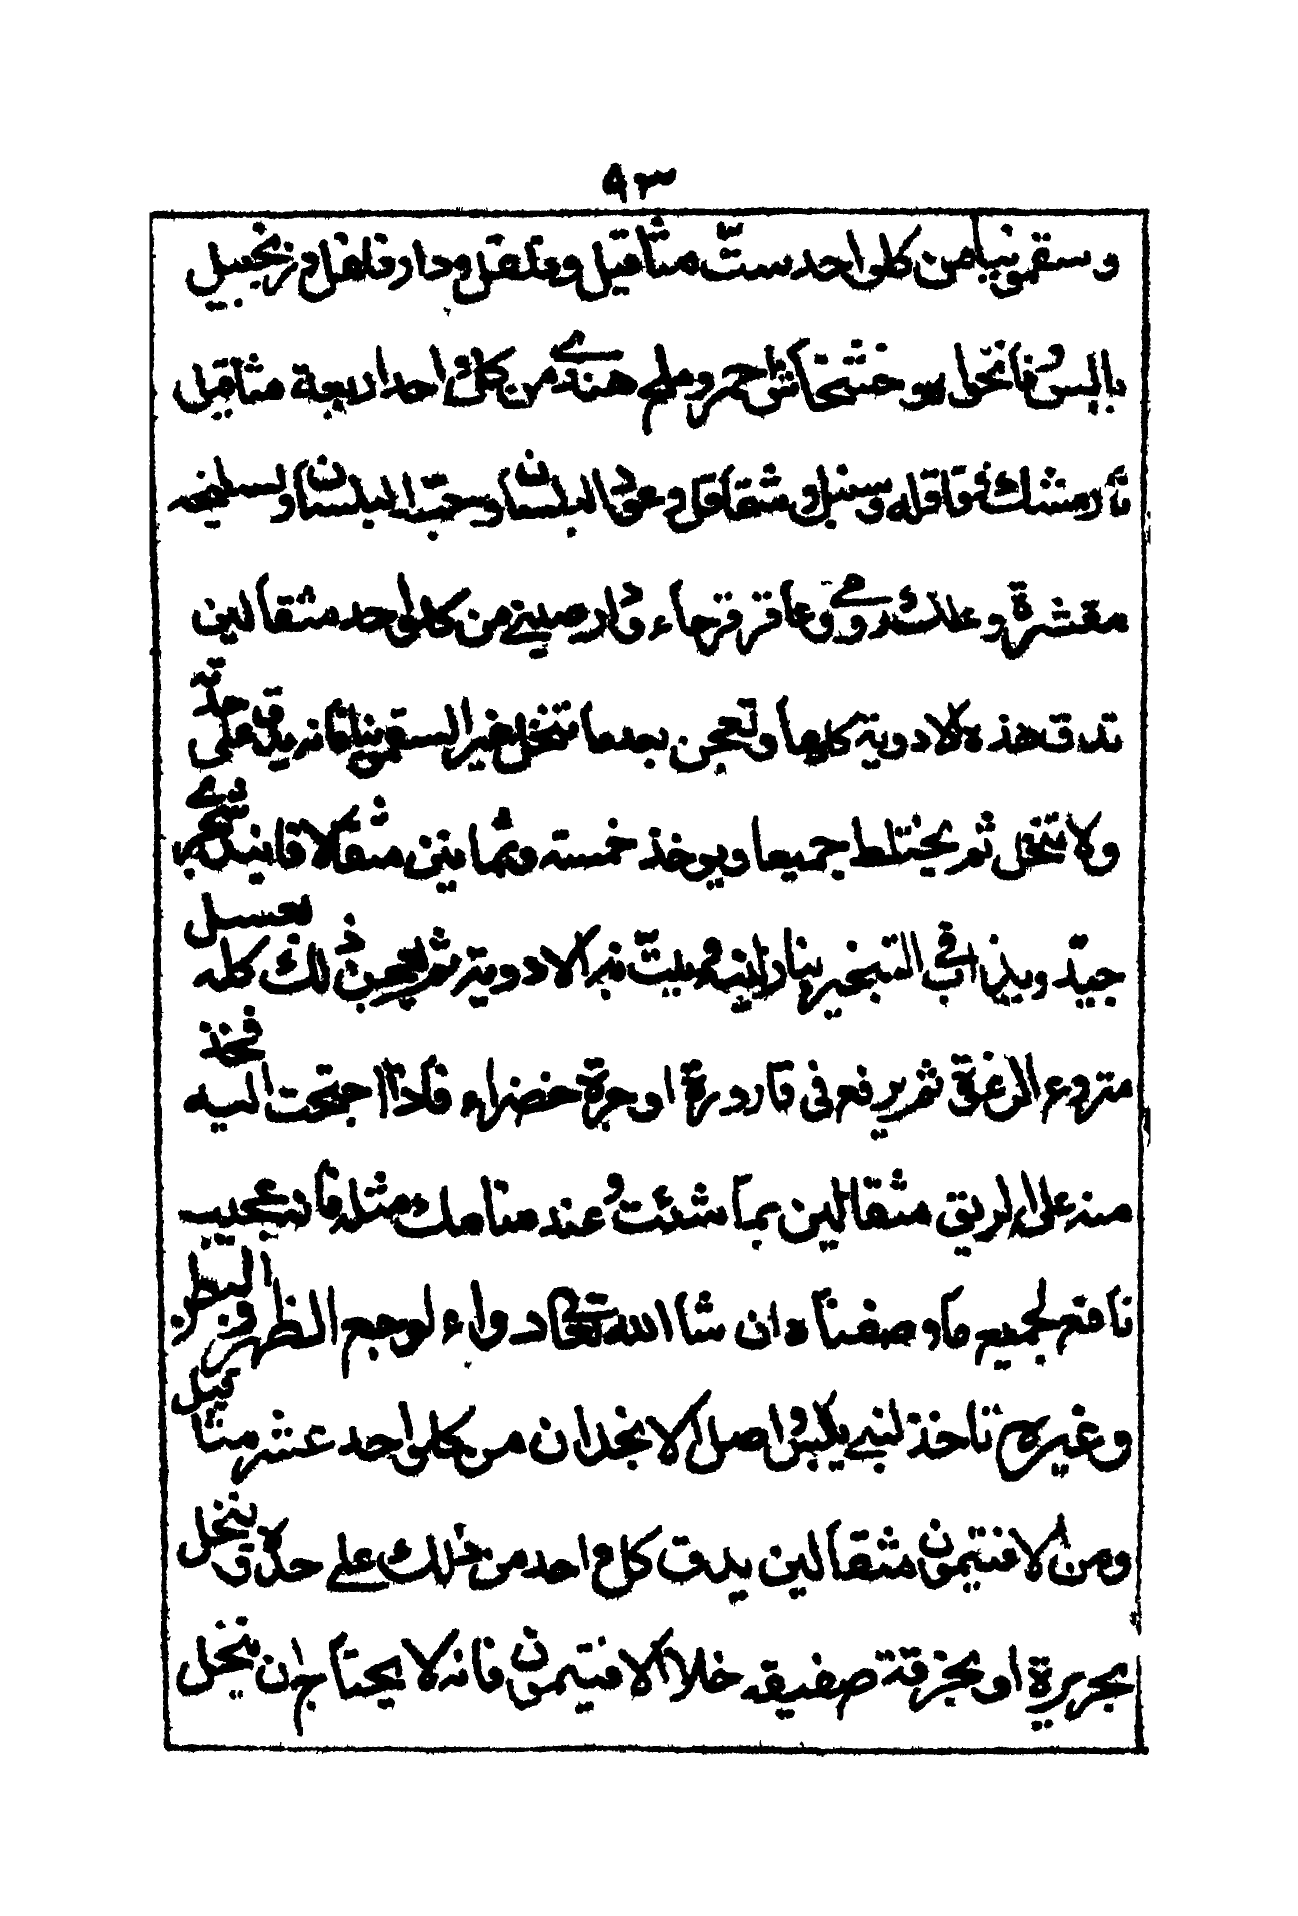 ٩٣
وسقمونيا من كل واحد ستّ مثاقيل وفلفل ودار فلفل وزنجبيل
يابس وفانخل بنو خشخاش احمر وملح هندے من كل احد اربعة مثاقيل
نارمشك وقاقله وسنبل وشقاقل وعود البلسان وحبّ البلسان وسليخه
مقشرة وعلك رومے وعاقر قرحاء ودارصينے من كل واحد مثقالين
تدق هذه الادوية كلها وتعجن بعدما تنخل غير السقمونيا فانه يدق على حدّة
ولا تنخل ثم يختلط جميعا ويوخذ خمسة وثمانين مثقالا فانيد سنجرے
جيّد ويذاب فى التبخير بنار لينه ويليتّ به الادوية ثم يعجن ذلك كله بعسل
منزوع الرغوة ثم يرفع فى قارورة او جرة خضراء فاذا احتجت اليه فخذ
منه على الريق مثقالين بما شئت وعند منامك مثله فانه عجيب
نافع لجميع ما وصفناه ان شا الله تعالى دواء لوجع الظهر والبطن
وغيره تاخذ لبنے يابس واصل الانجدان من كل واحد عشر مثاقيل
ومن الافتيمون مثقالين يدق كل واحد من ذلك على حدة وينخل
بحريرة او بخرقة صفيقه خلا الافتيمون فانه لا يحتاج ان ينخل